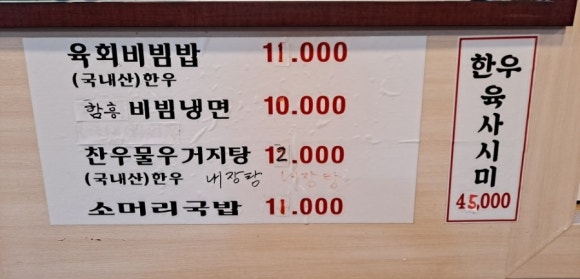 육회비빔밥 11.000
(국내산)한우
함흥 비빔냉면 10.000
찬우물우거지탕 12.000
(국내산)한우 내장탕 내장탕
소머리국밥 11.000
한우육사시미
45,000